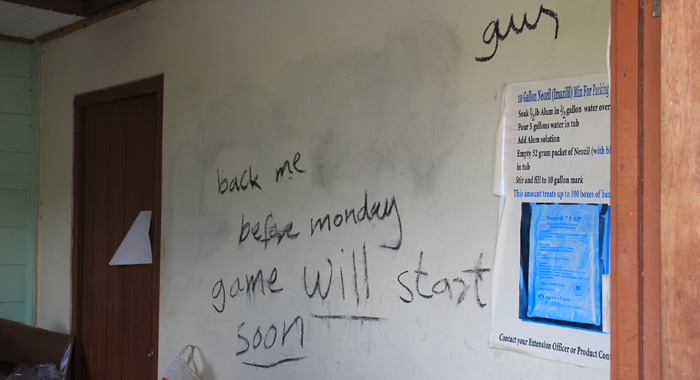 guy
back me
before monday
game will start
soon
10 Gallon Neozil (Imazilil) Mix For Packing
Soak ½ lb Alum in ½ gallon water over
Pour 5 gallons water in tub
Add Alum solution
Empty 32 gram packet of Neozil (with bl
in tub
Stir and fill to 10 gallon mark
This amount treats up to 100 boxes of ban
Neozil 75 SP
Contact your Extension Officer or Product Con